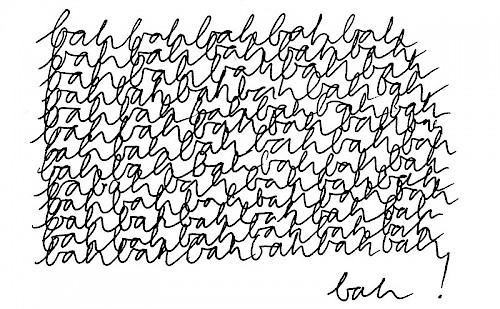 bah bah bah bah bah
bah bah bah bah bah
bah bah bah bah bah
bah bah bah bah bah bah
bah bah bah bah bah bah
bah bah bah bah bah bah
bah bah bah bah bah bah
bah bah bah bah bah bah
bah bah bah bah bah bah
bah bah bah bah bah bah
bah bah bah bah bah bah
bah !